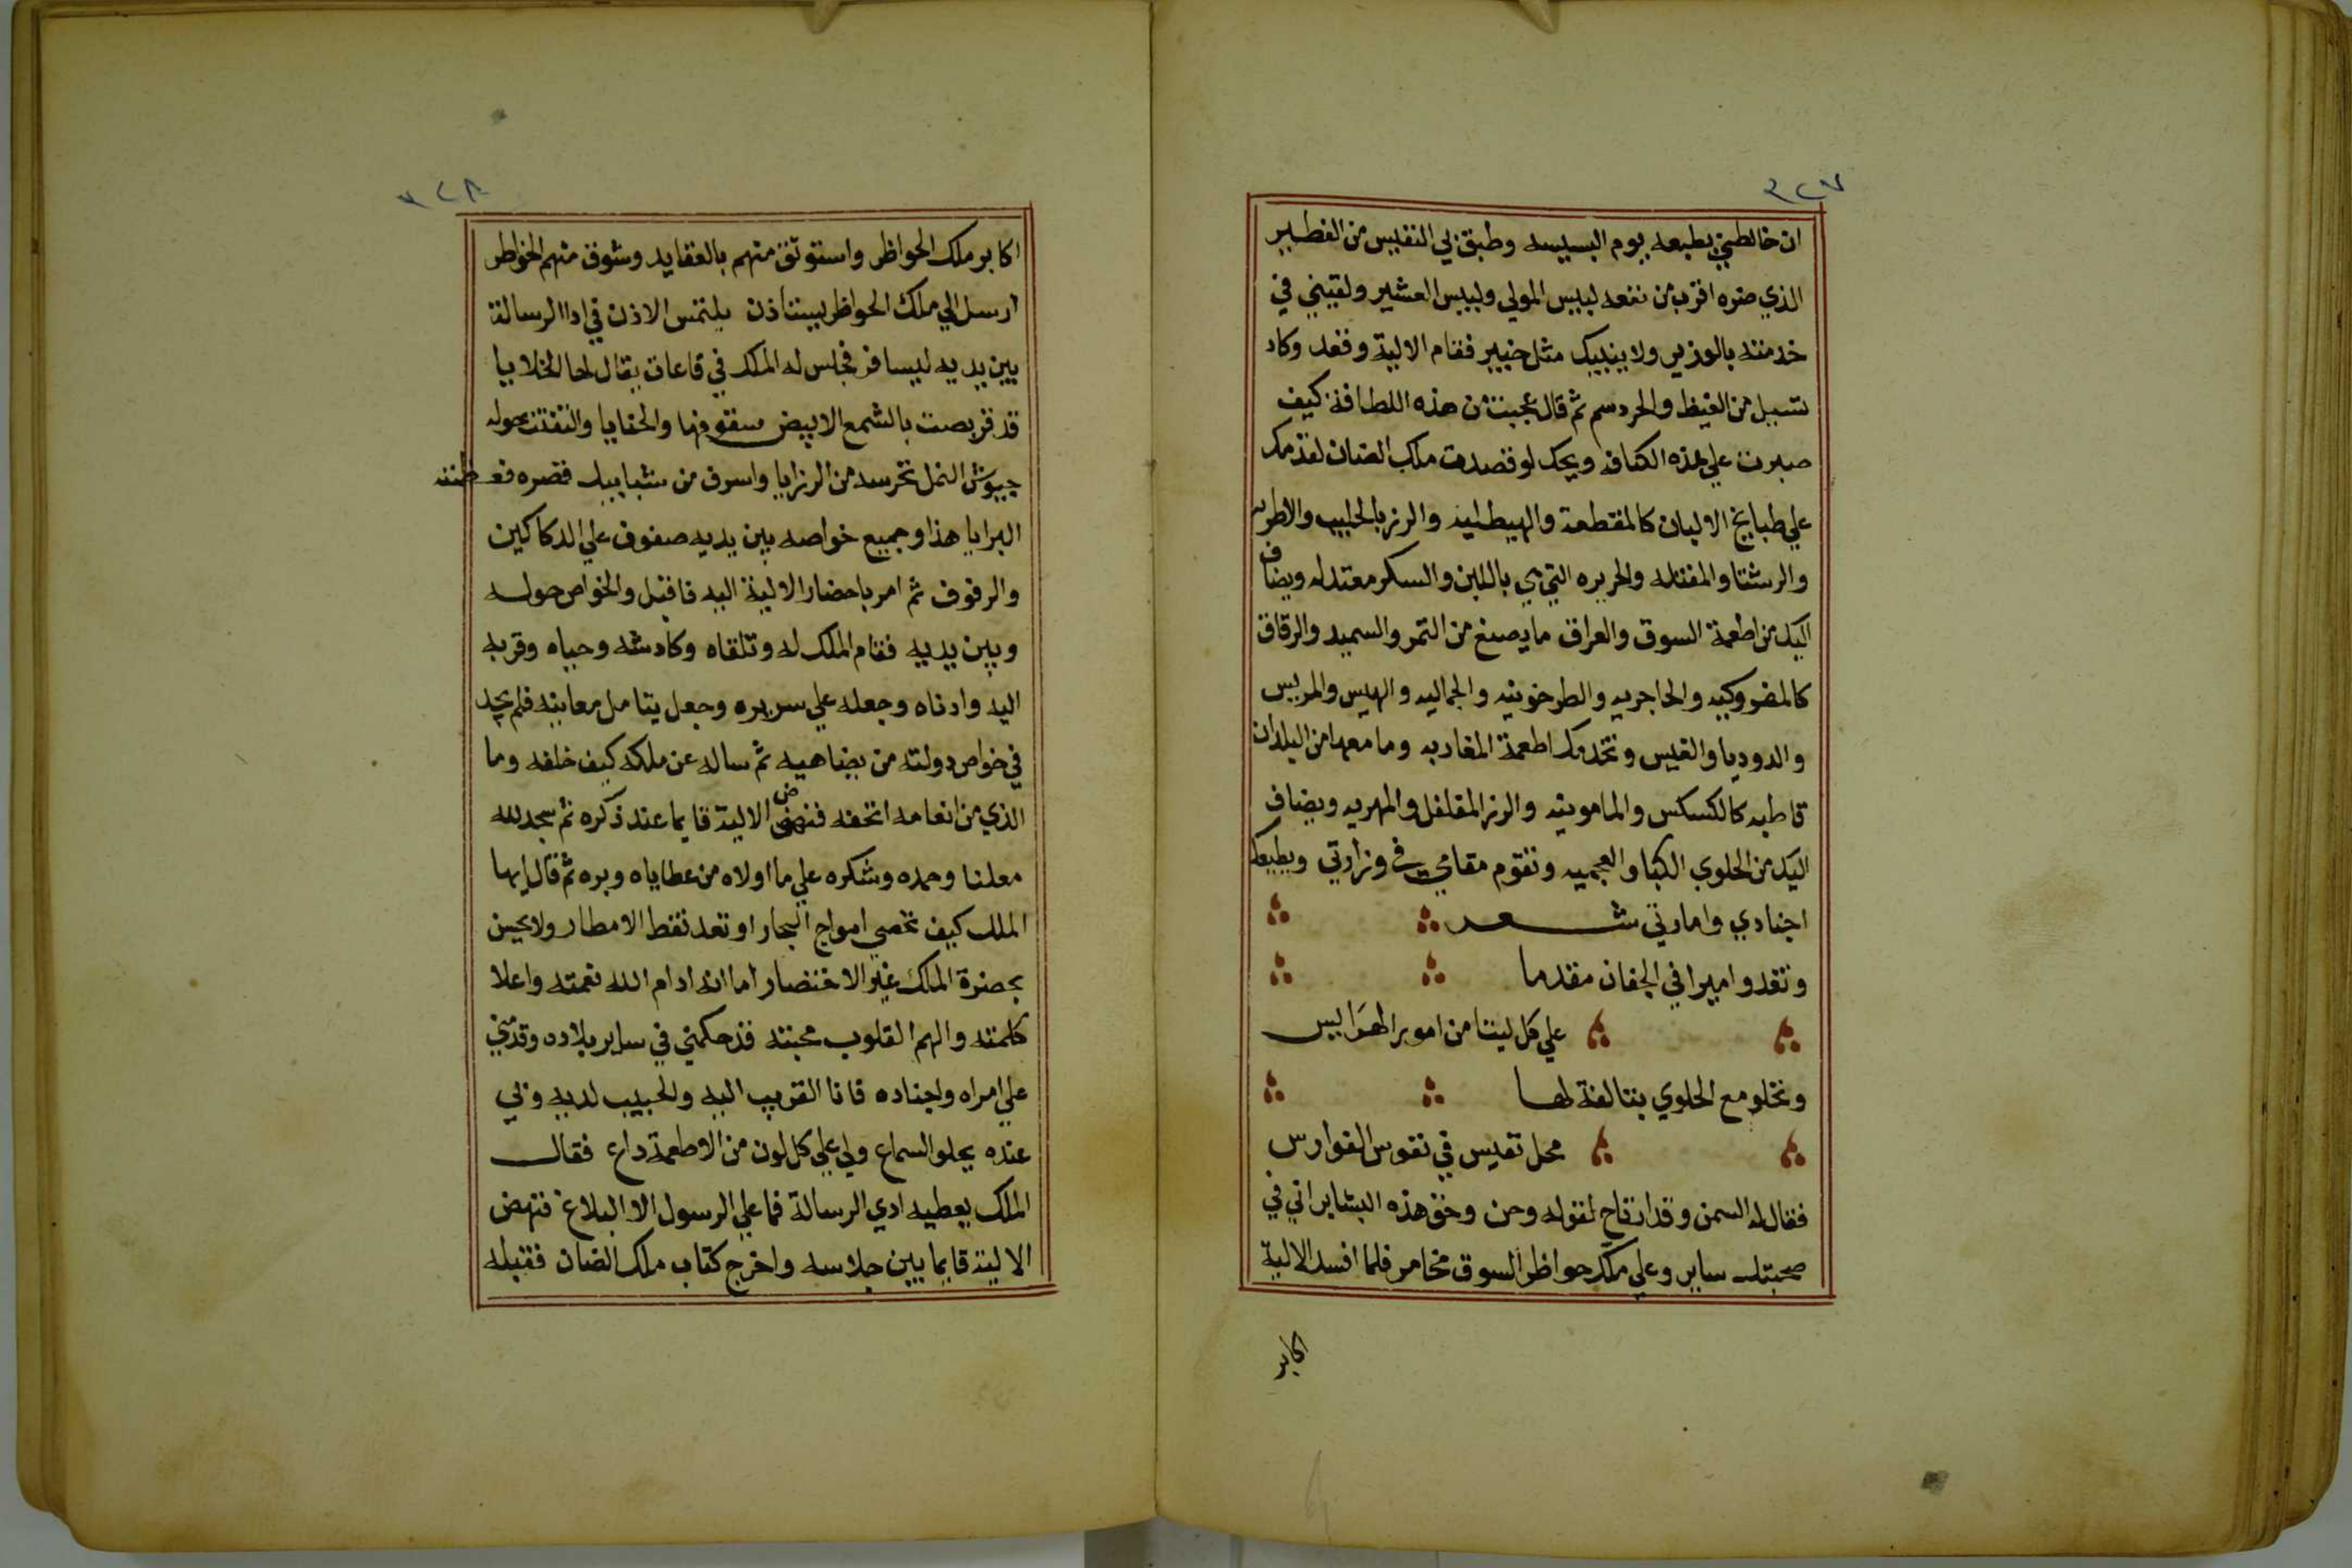 ٣٢٧
ان خالطني بطبعه يوم البسيسه وطبق لي النفيس من الفطير
الذي ضره اقرب من نفعه لبيس المولي ولبيس العشير ولقيني في
خدمته بالوزير ولا ينبيك مثل خبير فقام الالية وقعد وكاد
تسيل من الغيظ والحردسم ثم قال عجبت من هذه اللطافة كيف
صبرت علي هذه الكنافه ويحك لو قصدت ملك الضان لقدمك
علي طبايخ الالبان كالمقطعة والهيطليه والرز بالحليب والاطريه
والرشتا والمفتله والحريره التي هي باللبن والسكر معتدله ويضاف
اليك من اطعمة السوق والعراق ما يصنع من التمر والسميد والرقاق
كالمفروكيه والحاجريه والطرخونيه والجماليه والهيس والمريس
والدوديا والقيس وتخدمك اطعمة المغاربه وما معها من البلدان
قاطبه كالكسكس والمامونيه والرز المفلفل والمهريه ويضاف
اليك من الحلوي الكبا والعجميه وتقوم مقامي في وزارتي ويطيعك
اجنادي وامارتي شعر
وتغدو اميرا في الجفان مقدما
علي كل ليتنا من امور الهرايس
وتخلو مع الحلوي بتالفة لها
محل نفيس في نفوس الفوارس
فقال له السمن وقد ارتاح لقوله وحن وحق هذه البشاير اني في
صحبتك ساير وعلي ملك حواظر السوق مخامر فلما افسد الالية
اكابر
٣٢٨
اكابر ملك الحواظر واستوثق منهم بالعقايد وشوف منهم الخواطر
ارسل الي ملك الحواظر يستاذن يلتمس الاذن في ادا الرسالة
بين يديه ليسافر فجلس له الملك في قاعات يقال لها الخلايا
قد قربصت بالشمع الابيض سقوفها والحفايا والتفت حوله
جيوش النمل تحرسه من الرزايا واسرف من شبابيك قصره فعظمته
البرايا هذا وجميع خواصه بين يديه صفوف علي الدكاكين
والرفوف ثم امر باحضار الالية اليه فاقبل والخواص حوله
وبين يديه فقام الملك له وتلقاه وكادشه وحياه وقربه
اليه وادناه وجعله علي سريره وجعل يتامل معاينه فلم يجد
في خواص دولته من يضاهيه ثم ساله عن ملكه كيف خلفه وما
الذي من انعامه اتحفه فنهض الالية قايما عند ذكره ثم سجد لله
معلنا وحمده وشكره علي ما اولاه من عطاياه وبره ثم قال ايها
الملك كيف تحصي امواج البحار او تعد نقط الامطار ولا يحسن
بحضرة الملك غير الاختصار اما انه ادام الله نعمته واعلا
كلمته والهم القلوب محبته قد حكمني في ساير بلاده وقدمني
علي امراه واجناده فانا القريب اليه والحبيب لديه ولي
عنده يحلو السماع ولي علي كل لون من الاطعمة داع فقال
الملك يعطيه ادي الرسالة فما علي الرسول الا البلاغ فنهض
الالية قايما بين جلاسه واخرج كتاب ملك الضان فقبله